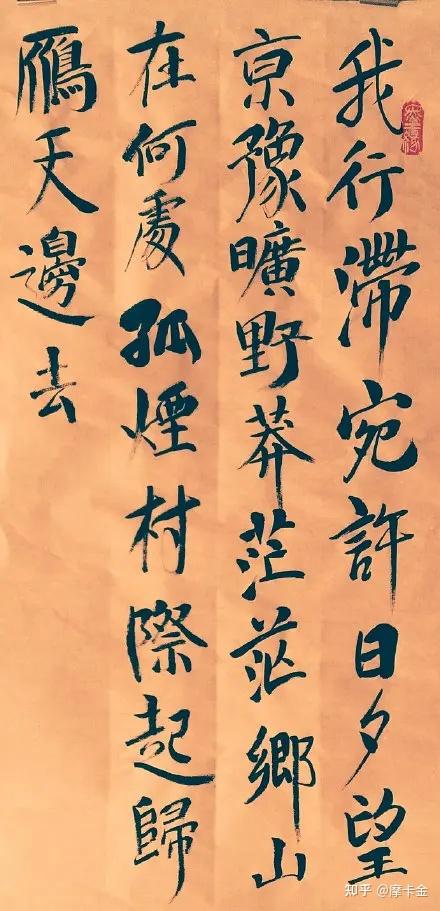 我行滯宛許日夕望
京豫曠野莽茫茫鄉山
在何處孤煙村際起歸
鴈天邊去
知乎 @摩卡金